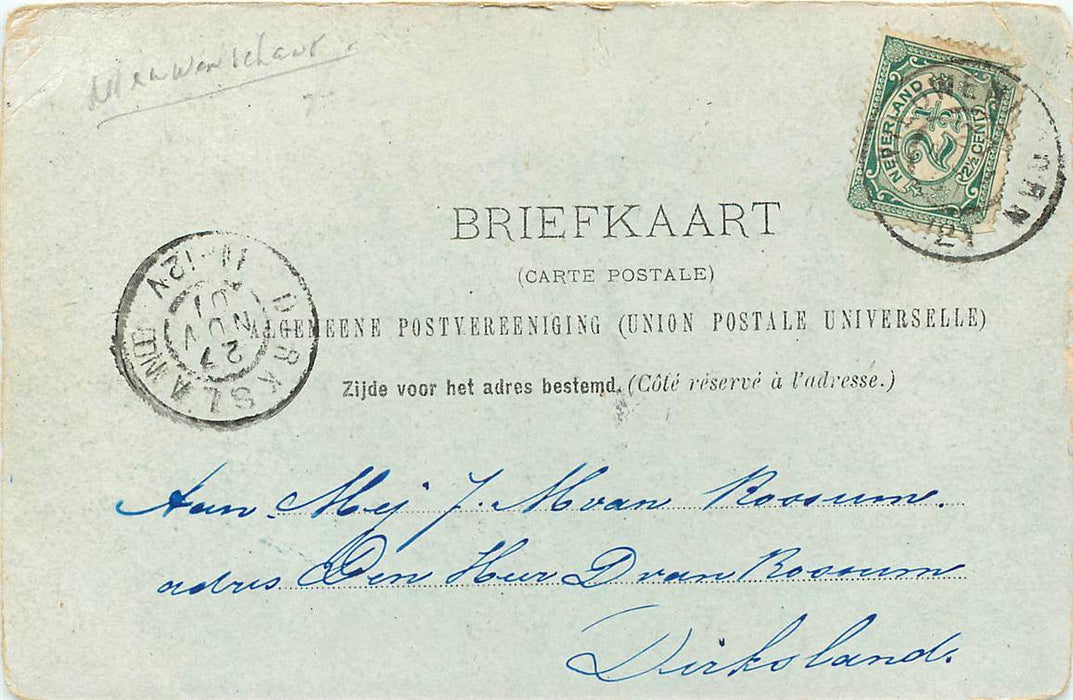 NEDERLAND
2½
(2½ CENT)
BRIEFKAART
(CARTE POSTALE)
ALGEMEENE POSTVEREENIGING (UNION POSTALE UNIVERSELLE)
Zijde voor het adres bestemd. (Côté réservé à l'adresse.)
DIRKSLAND
11-12V
27
NOV
01
Aan Mej J. M van Roosum.
adres Den Heer D van Rossum
Dirksland.